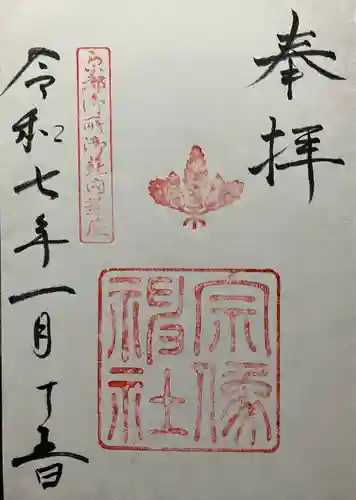 奉拝
宗像
神社
京都御所御苑内鎮座
令和七年一月十五日